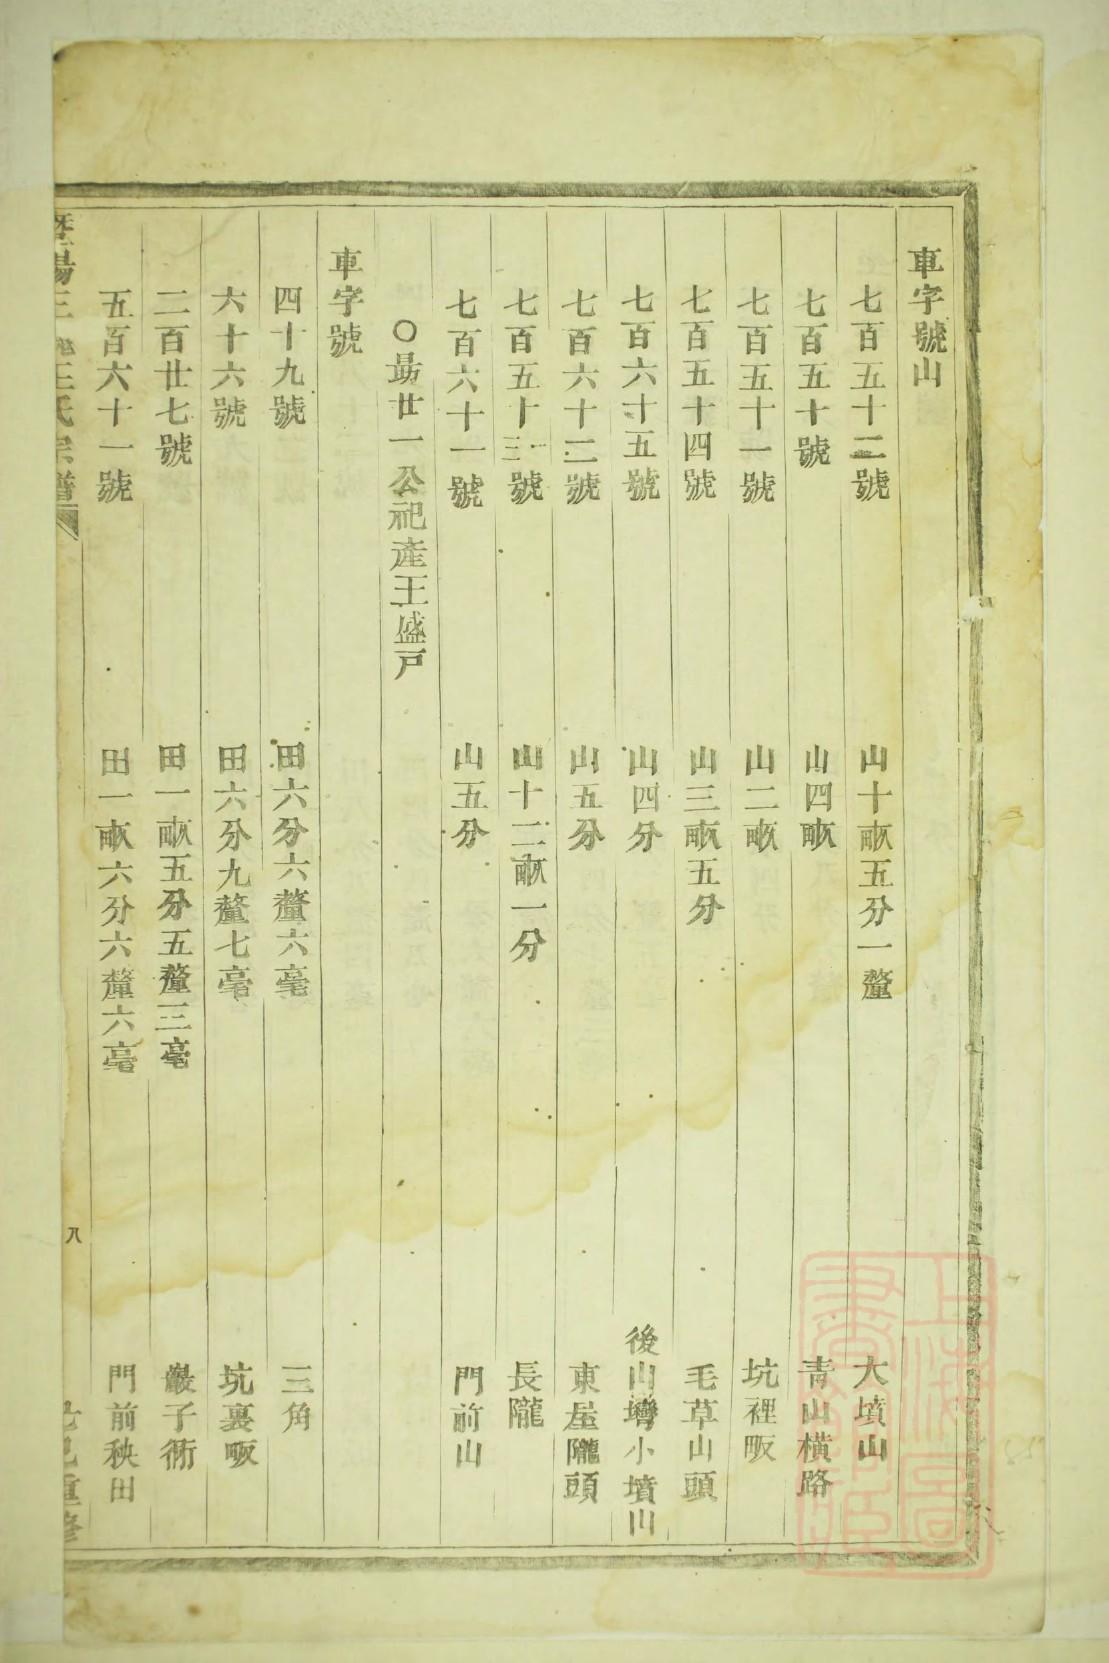 車字號山
七百五十二號 山十畝五分一釐 大墳山
七百五十號 山四畝 青山橫路
七百五十一號 山二畝 坑裡畈
七百五十四號 山三畝五分 毛草山頭
七百六十五號 山四分 後山塆小墳山
七百六十二號 山五分 東屋隴頭
七百五十三號 山十二畝一分 長隴
七百六十一號 山五分 門前山
○勗廿一公祀產王盛戶
車字號
四十九號 田六分六釐六毫 三角
六十六號 田六分九釐七毫 坑裏畈
二百廿七號 田一畝五分五釐三毫 嚴子衕
五百六十一號 田一畝六分六釐六毫 門前秧田
暨陽 王氏宗譜 八 重修
上海圖書館藏